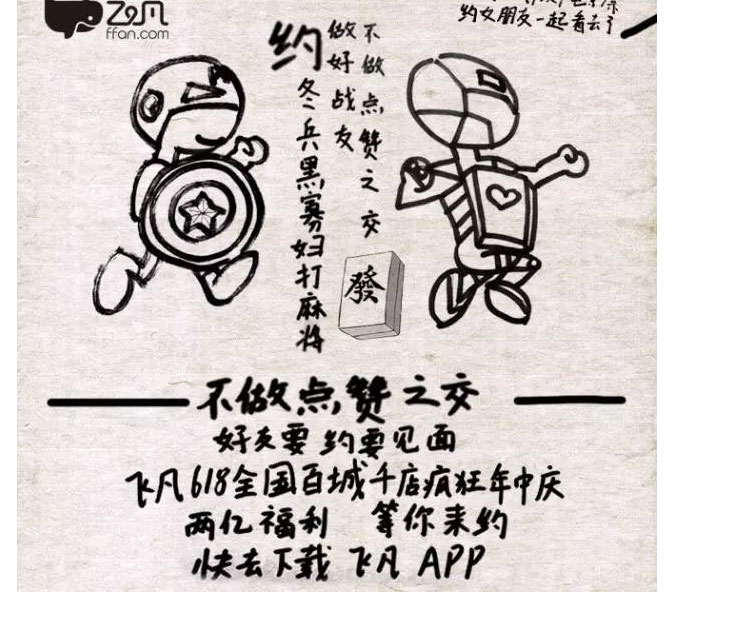 飞凡
ffan.com
约女朋友一起看去了
不做点赞之交
做好战友
约
冬兵黑寡妇打麻将
發
不做点赞之交
好友要约要见面
飞凡618全国百城千店疯狂年中庆
两亿福利 等你来约
快去下载 飞凡 APP